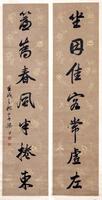 坐因佳客常虛左
簾為春風半捲東